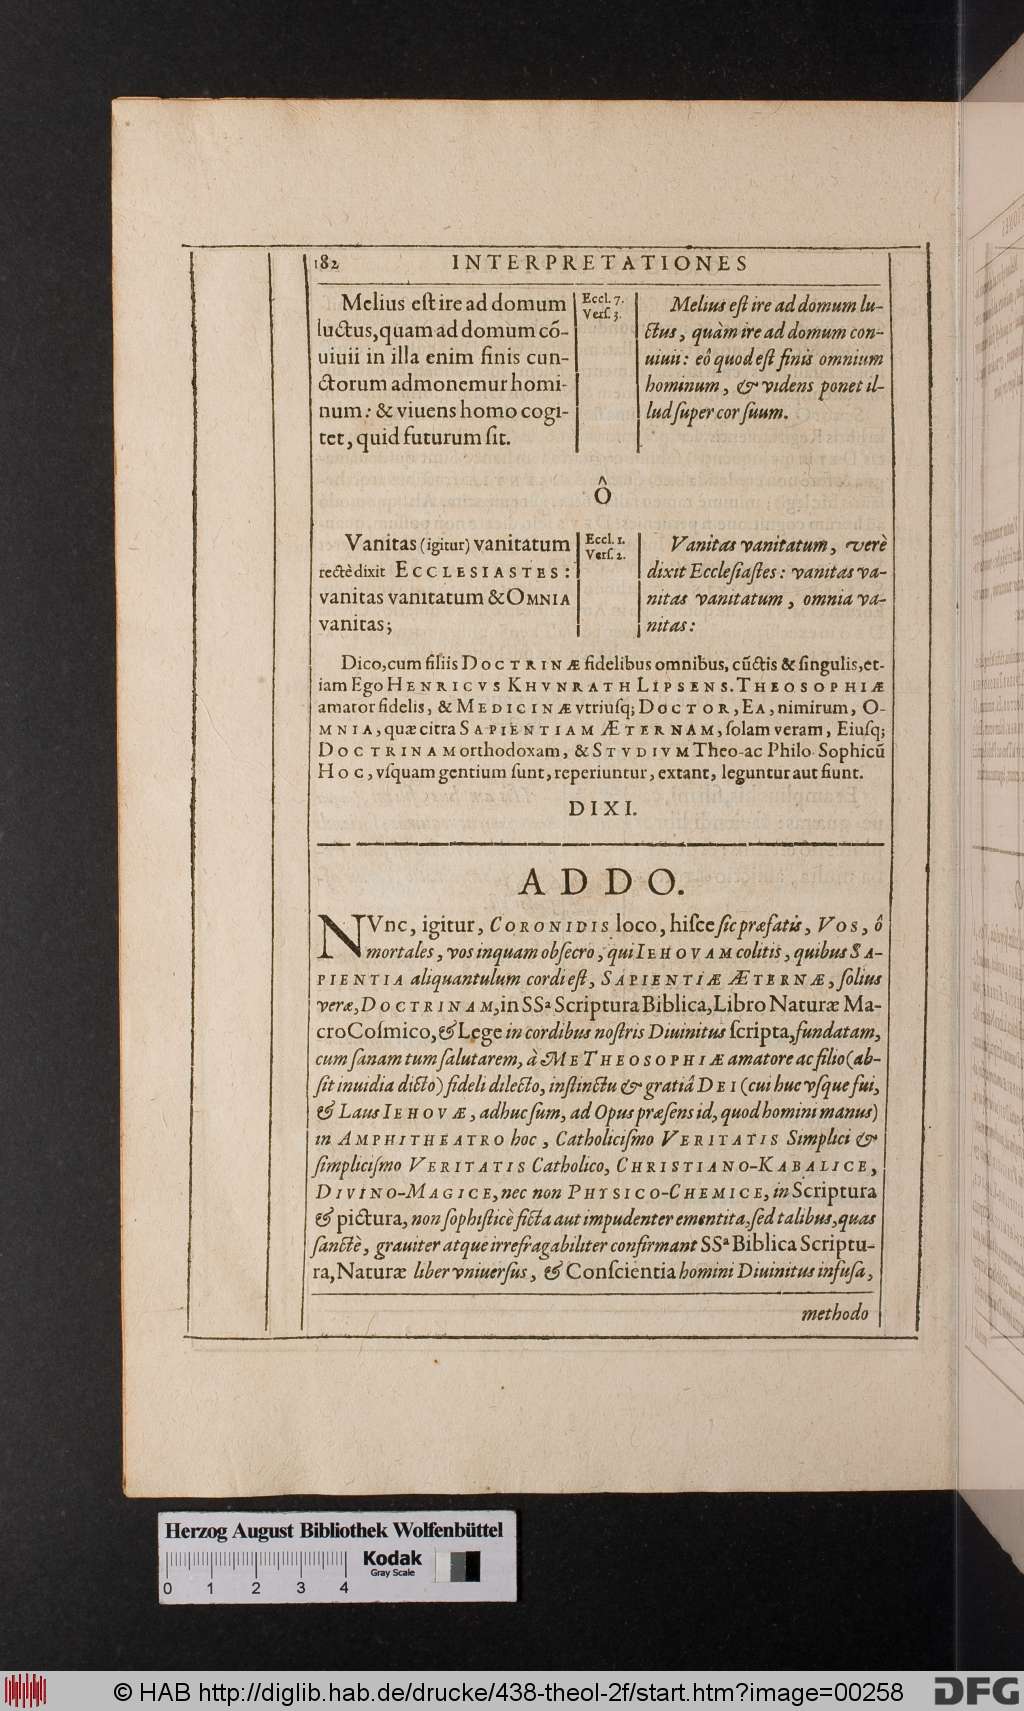 182 INTERPRETATIONES
Melius eſt ire ad domum
luctus, quam ad domum cõ-
uiuii in illa enim finis cun-
ctorum admonemur homi-
num: & viuens homo cogi-
tet, quid futurum ſit.
Eccl. 7.
Verſ. 3.
Melius eſt ire ad domum lu-
ctus, quàm ire ad domum con-
uiuii: eô quod eſt finis omnium
hominum, & videns ponet il-
lud ſuper cor ſuum.
Ô
Vanitas (igitur) vanitatum
rectè dixit ECCLESIASTES:
vanitas vanitatum & OMNIA
vanitas;
Eccl. 1.
Verſ. 2.
Vanitas vanitatum, verè
dixit Eccleſiaſtes: vanitas va-
nitas vanitatum, omnia va-
nitas:
Dico, cum filiis DOCTRINÆ fidelibus omnibus, cũctis & ſingulis, et-
iam Ego HENRICVS KHVNRATH LIPSENS. THEOSOPHIÆ
amator fidelis, & MEDICINÆ vtriuſq; DOCTOR, EA, nimirum, O-
MNIA, quæ citra SAPIENTIAM ÆTERNAM, ſolam veram, Eiuſq;
DOCTRINAM orthodoxam, & STVDIVM Theo-ac Philo-Sophicũ
HOC, vſquam gentium ſunt, reperiuntur, extant, leguntur aut fiunt.
DIXI.
ADDO.
NVnc, igitur, CORONIDIS loco, hiſce ſic præfatis, VOS, ô
mortales, vos inquam obſecro, qui IEHOVAM colitis, quibus SA-
PIENTIA aliquantulum cordi eſt, SAPIENTIÆ ÆTERNÆ, ſolius
veræ, DOCTRINAM, in SSª Scriptura Biblica, Libro Naturæ Ma-
croCoſmico, & Lege in cordibus noſtris Diuinitus ſcripta, fundatam,
cum ſanam tum ſalutarem, à ME THEOSOPHIÆ amatore ac filio (ab-
ſit inuidia dicto) fideli dilecto, inſtinctu & gratiâ DEI (cui huc vſque fui,
& Laus IEHOVÆ, adhuc ſum, ad Opus præſens id, quod homini manus)
in AMPHITHEATRO hoc, Catholiciſmo VERITATIS Simplici &
ſimpliciſmo VERITATIS Catholico, CHRISTIANO-KABALICE,
DIVINO-MAGICE, nec non PHYSICO-CHEMICE, in Scriptura
& pictura, non ſophiſticè ficta aut impudenter ementita, ſed talibus, quas
ſanctè, grauiter atque irrefragabiliter confirmant SSª Biblica Scriptu-
ra, Naturæ liber vniuerſus, & Conſcientia homini Diuinitus infuſa,
methodo
Herzog August Bibliothek Wolfenbüttel
0 1 2 3 4
Kodak
Gray Scale
© HAB http://diglib.hab.de/drucke/438-theol-2f/start.htm?image=00258
DFG